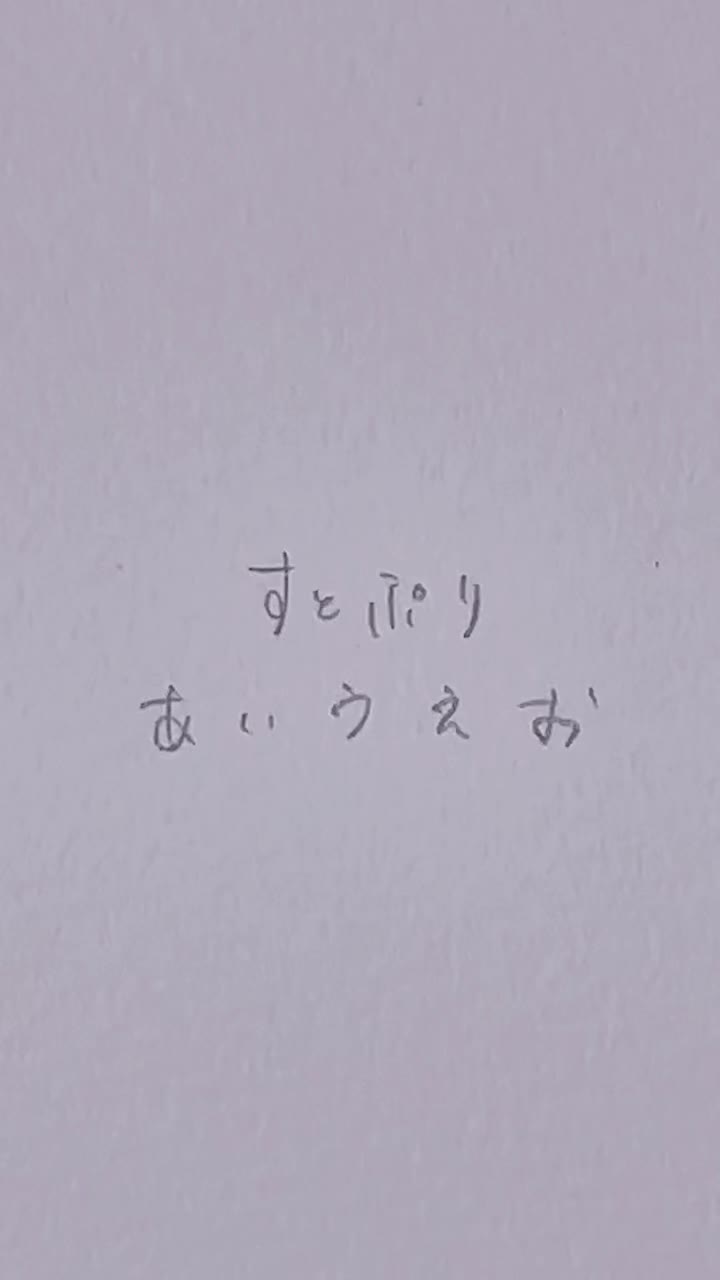 すとぷり
あいうえお